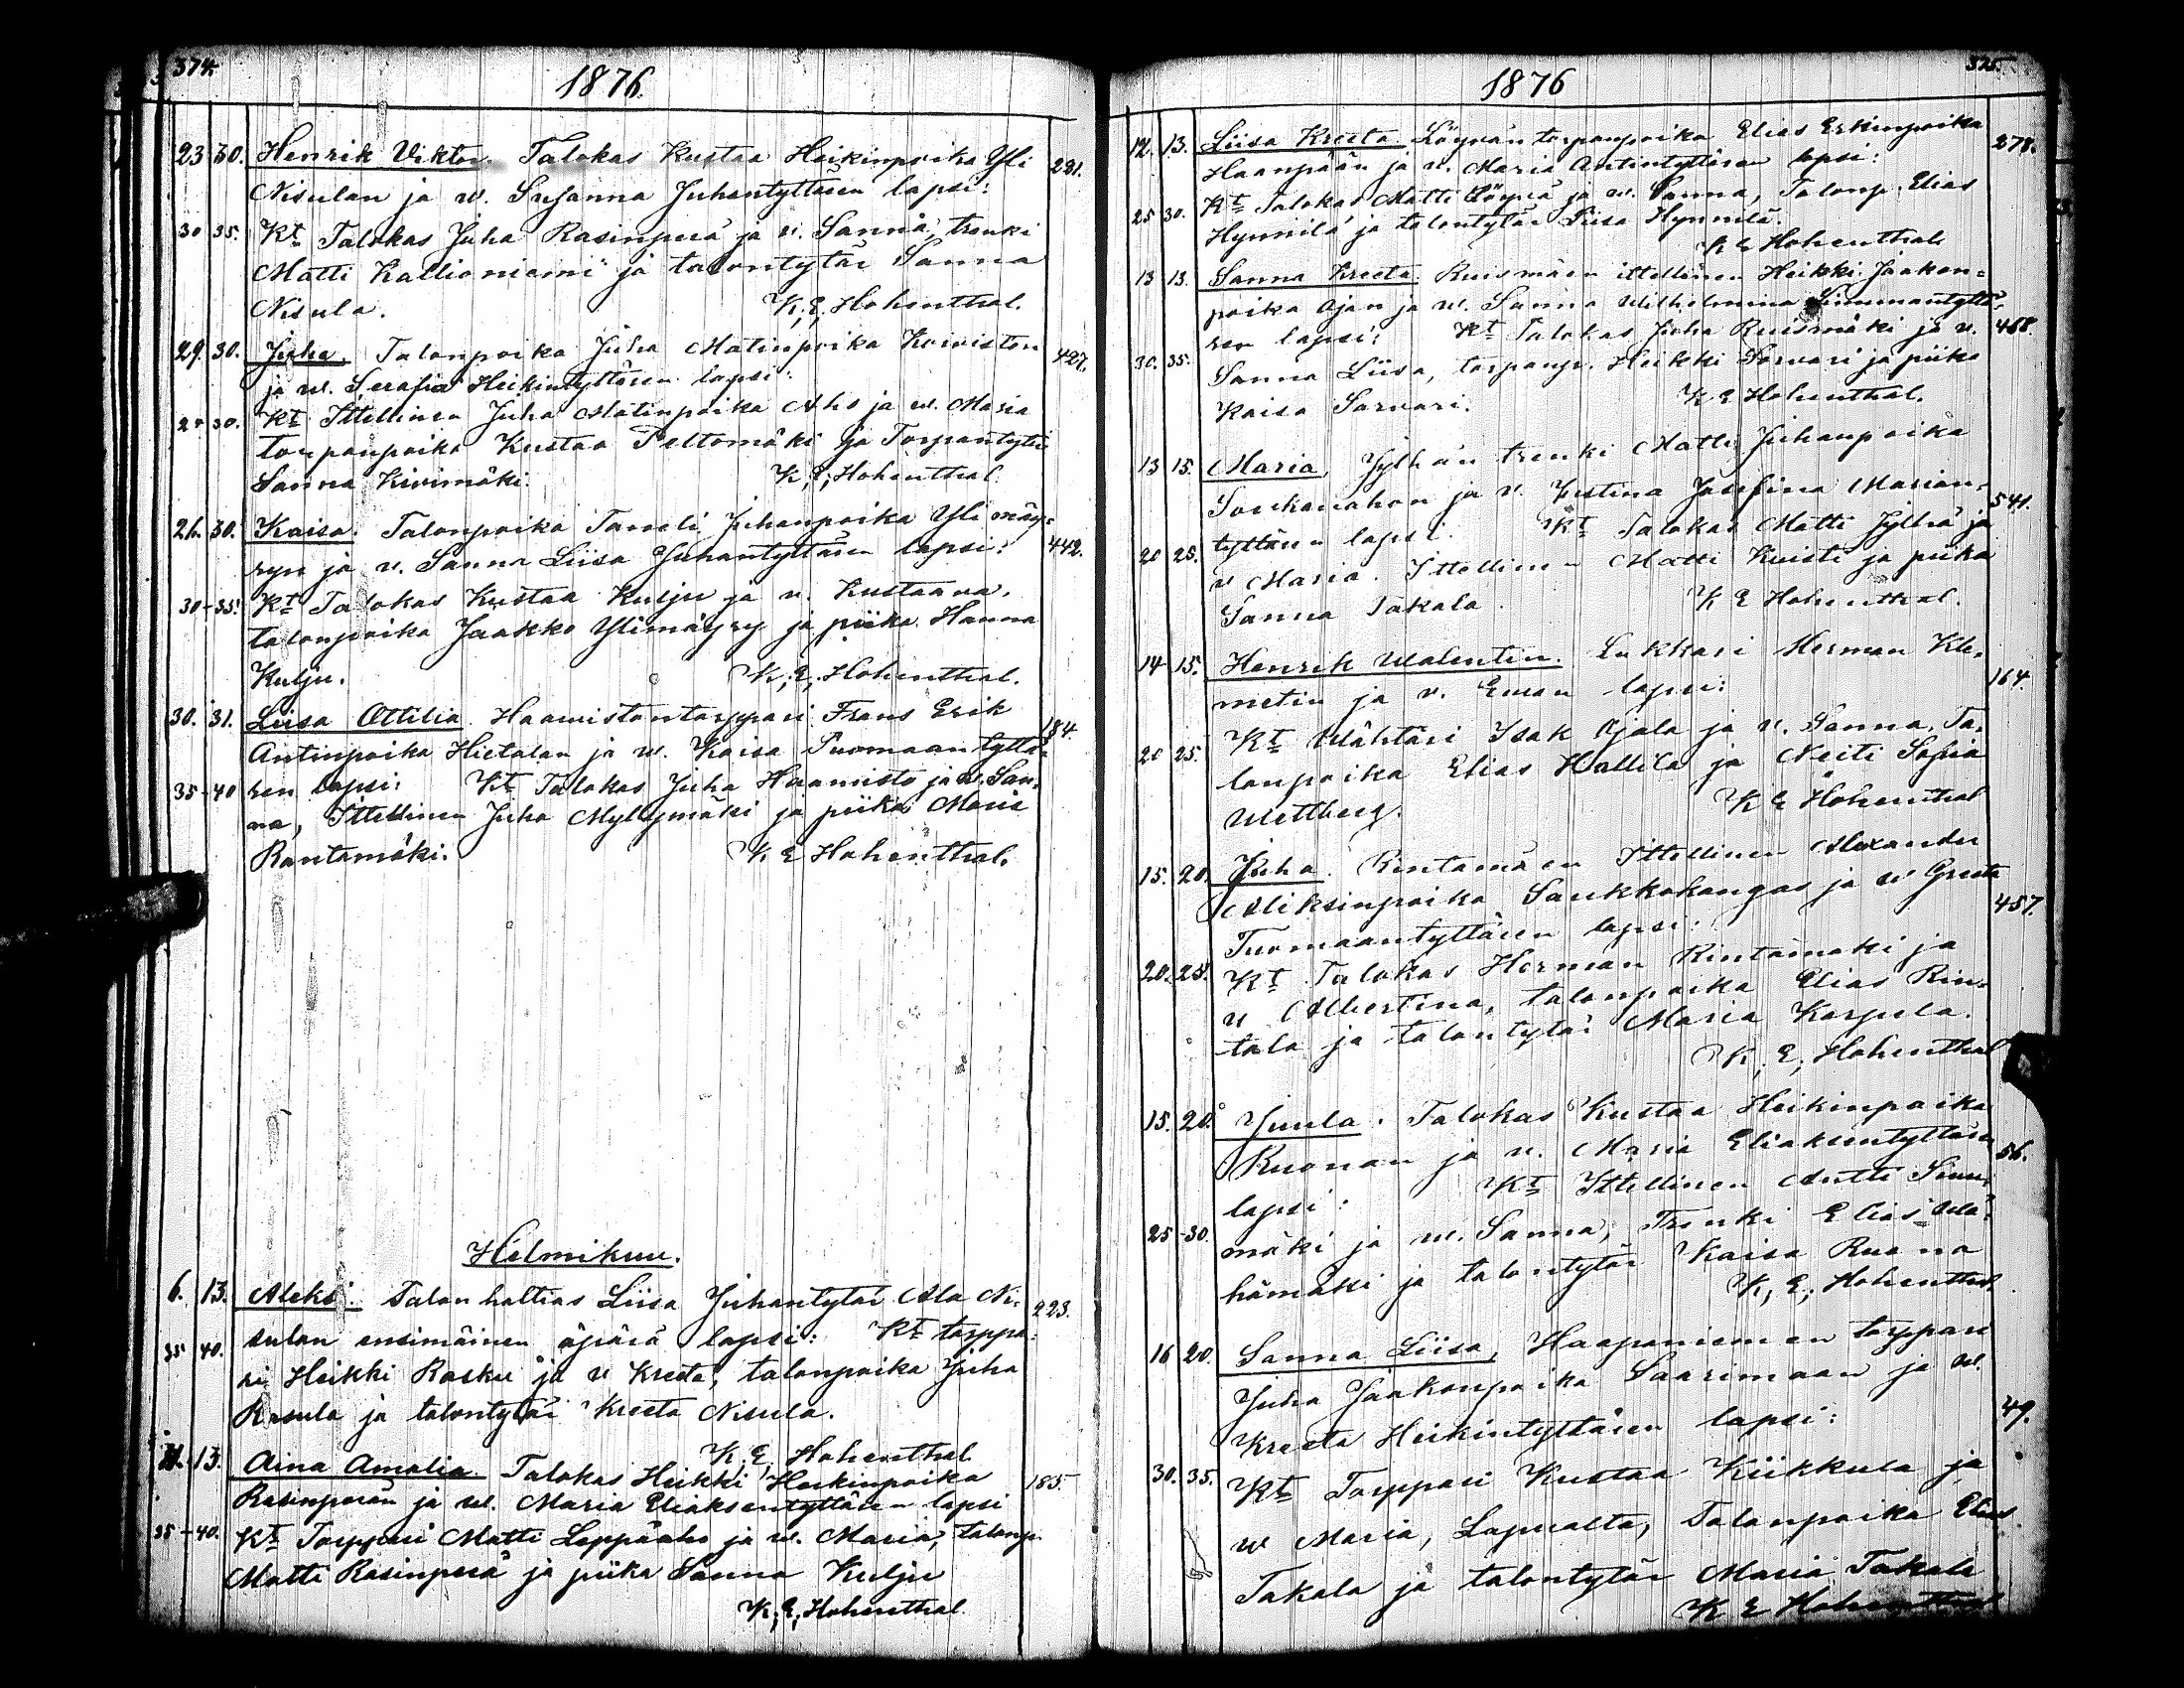 374.
1876.
23 30. Henrik Viktor. Talokas Kustaa Heikinpoika Yli 221.
Nisulan ja w. Susanna Juhantyttären lapsi:
30 35. Kt Talokas Juha Rasinperä ja v. Sanna, trenki
Matti Kallioniemi ja talontytär Sanna
Nisula. K. E. Hohenthal.
29. 30. Juha. Talonpoika Juha Matinpoika Koiviston 427.
ja w. Serafia Heikintyttären lapsi:
30. Kt Ittellinen Juha Matinpoika Aho ja w. Maria
torpanpoika Kustaa Peltomäki ja Torpantytär
Sanna Kivimäki. K. E. Hohenthal.
26. 30. Kaisa. Talonpoika Taneli Juhanpoika Yli mäy-
ryn ja v. Sanna Liisa Juhantyttären lapsi: 442.
30-35. Kt Talokas Kustaa Kulju ja v. Kustaava,
talonpoika Jaakko Ylimäyry ja piika Hanna
Kulju. K. E. Hohenthal.
30. 31. Liisa Ottilia. Haawistontorppari Frans Erik
Antinpoika Hietalan ja w. Kaisa Tuomaantyttä- 184.
ren lapsi: Kt Talokas Juha Haawisto ja w. San-
35-40 na, Ittellinen Juha Myllymäki ja piika Maria
Rantamäki. K E Hohenthal.
Helmikuu.
6. 13. Aleksi. Talon haltias Liisa Juhantytär Ala Ni- 223.
sulan ensimäinen äpärä lapsi: Kt torppa-
35 40. ri Heikki Rasku ja v Kreeta, talonpoika Juha
Rasula ja talontytär Kreeta Nisula.
K. E. Hohenthal
11. 13. Aina Amalia. Talokas Heikki Heikinpoika 185.
Rasinperän ja w. Maria Eliaksentyttären lapsi
35-40. Kt Torppari Matti Leppäaho ja w. Maria, talonp.
Matti Rasinperä ja piika Sanna Kulju
K. E. Hohenthal.
325.
1876
12. 13. Liisa Kreeta. Löyvän torpanpoika Elias Erkinpoika 278.
Haanpään ja v. Maria Antintyttären lapsi:
25 30. Kt Talokas Matti Löyvä ja w. Sanna, Talonp. Elias
Hynnilä ja talontytär Liisa Hynnilä.
K E Hohenthal.
13 13. Sanna Kreeta. Ruismäen ittellinen Heikki Jaakon-
poika Ojan ja w. Sanna Wilhelmina Simmantyttä-
ren lapsi: Kt Talokas Juha Ruismäki ja v. 468.
30. 35. Sanna Liisa, torpanp. Heikki Sarvari ja piika
Kaisa Sarvari. K E Hohenthal.
13 15. Maria. Jylhän trenki Matti Juhanpoika
Soukanahon ja v. Justina Josefina Marian- 541.
tyttären lapsi. Kt Talokas Matti Jylhä ja
20 25. v Maria. Ittellinen Matti Kuisti ja piika
Sanna Takala. K E Hohenthal.
14 15. Henrik Walentin. Lukkari Herman Kle-
metin ja v. Eman lapsi: 164.
20 25. Kt Wähtäri Isak Ojala ja v. Sanna, Ta-
lonpoika Elias Hallila ja Neiti Sofia
Wettberg. K E Hohenthal
15. 20. Juha. Rintamäen Ittellinen Alexander
Aliksinpoika Saukkokangas ja w Greeta 457.
Tuomaantyttären lapsi:
20. 25. Kt Talokas Herman Rintamäki ja
v Albertina, talonpoika Elias Rin-
tala ja talontytär Maria Karpela.
K. E. Hohenthal
15. 20. Juula. Talokas Kustaa Heikinpoika
Ruonan ja v. Maria Eliaksentyttären 56.
lapsi: Kt Ittellinen Antti Sivu-
25-30. mäki ja w. Sanna, Trenki Elias Wä-
hämäki ja talontytär Kaisa Ruona
K. E. Hohenthal.
16 20. Sanna Liisa, Haapaniemen torppari
Juha Jaakonpoika Saarimaan ja w.
Kreeta Heikintyttären lapsi: 49.
30. 35. Kt Torppari Kustaa Kiikkula ja
w Maria, Lapualta, Talonpoika Elias
Takala ja talontytär Maria Takala
K E Hohenthal